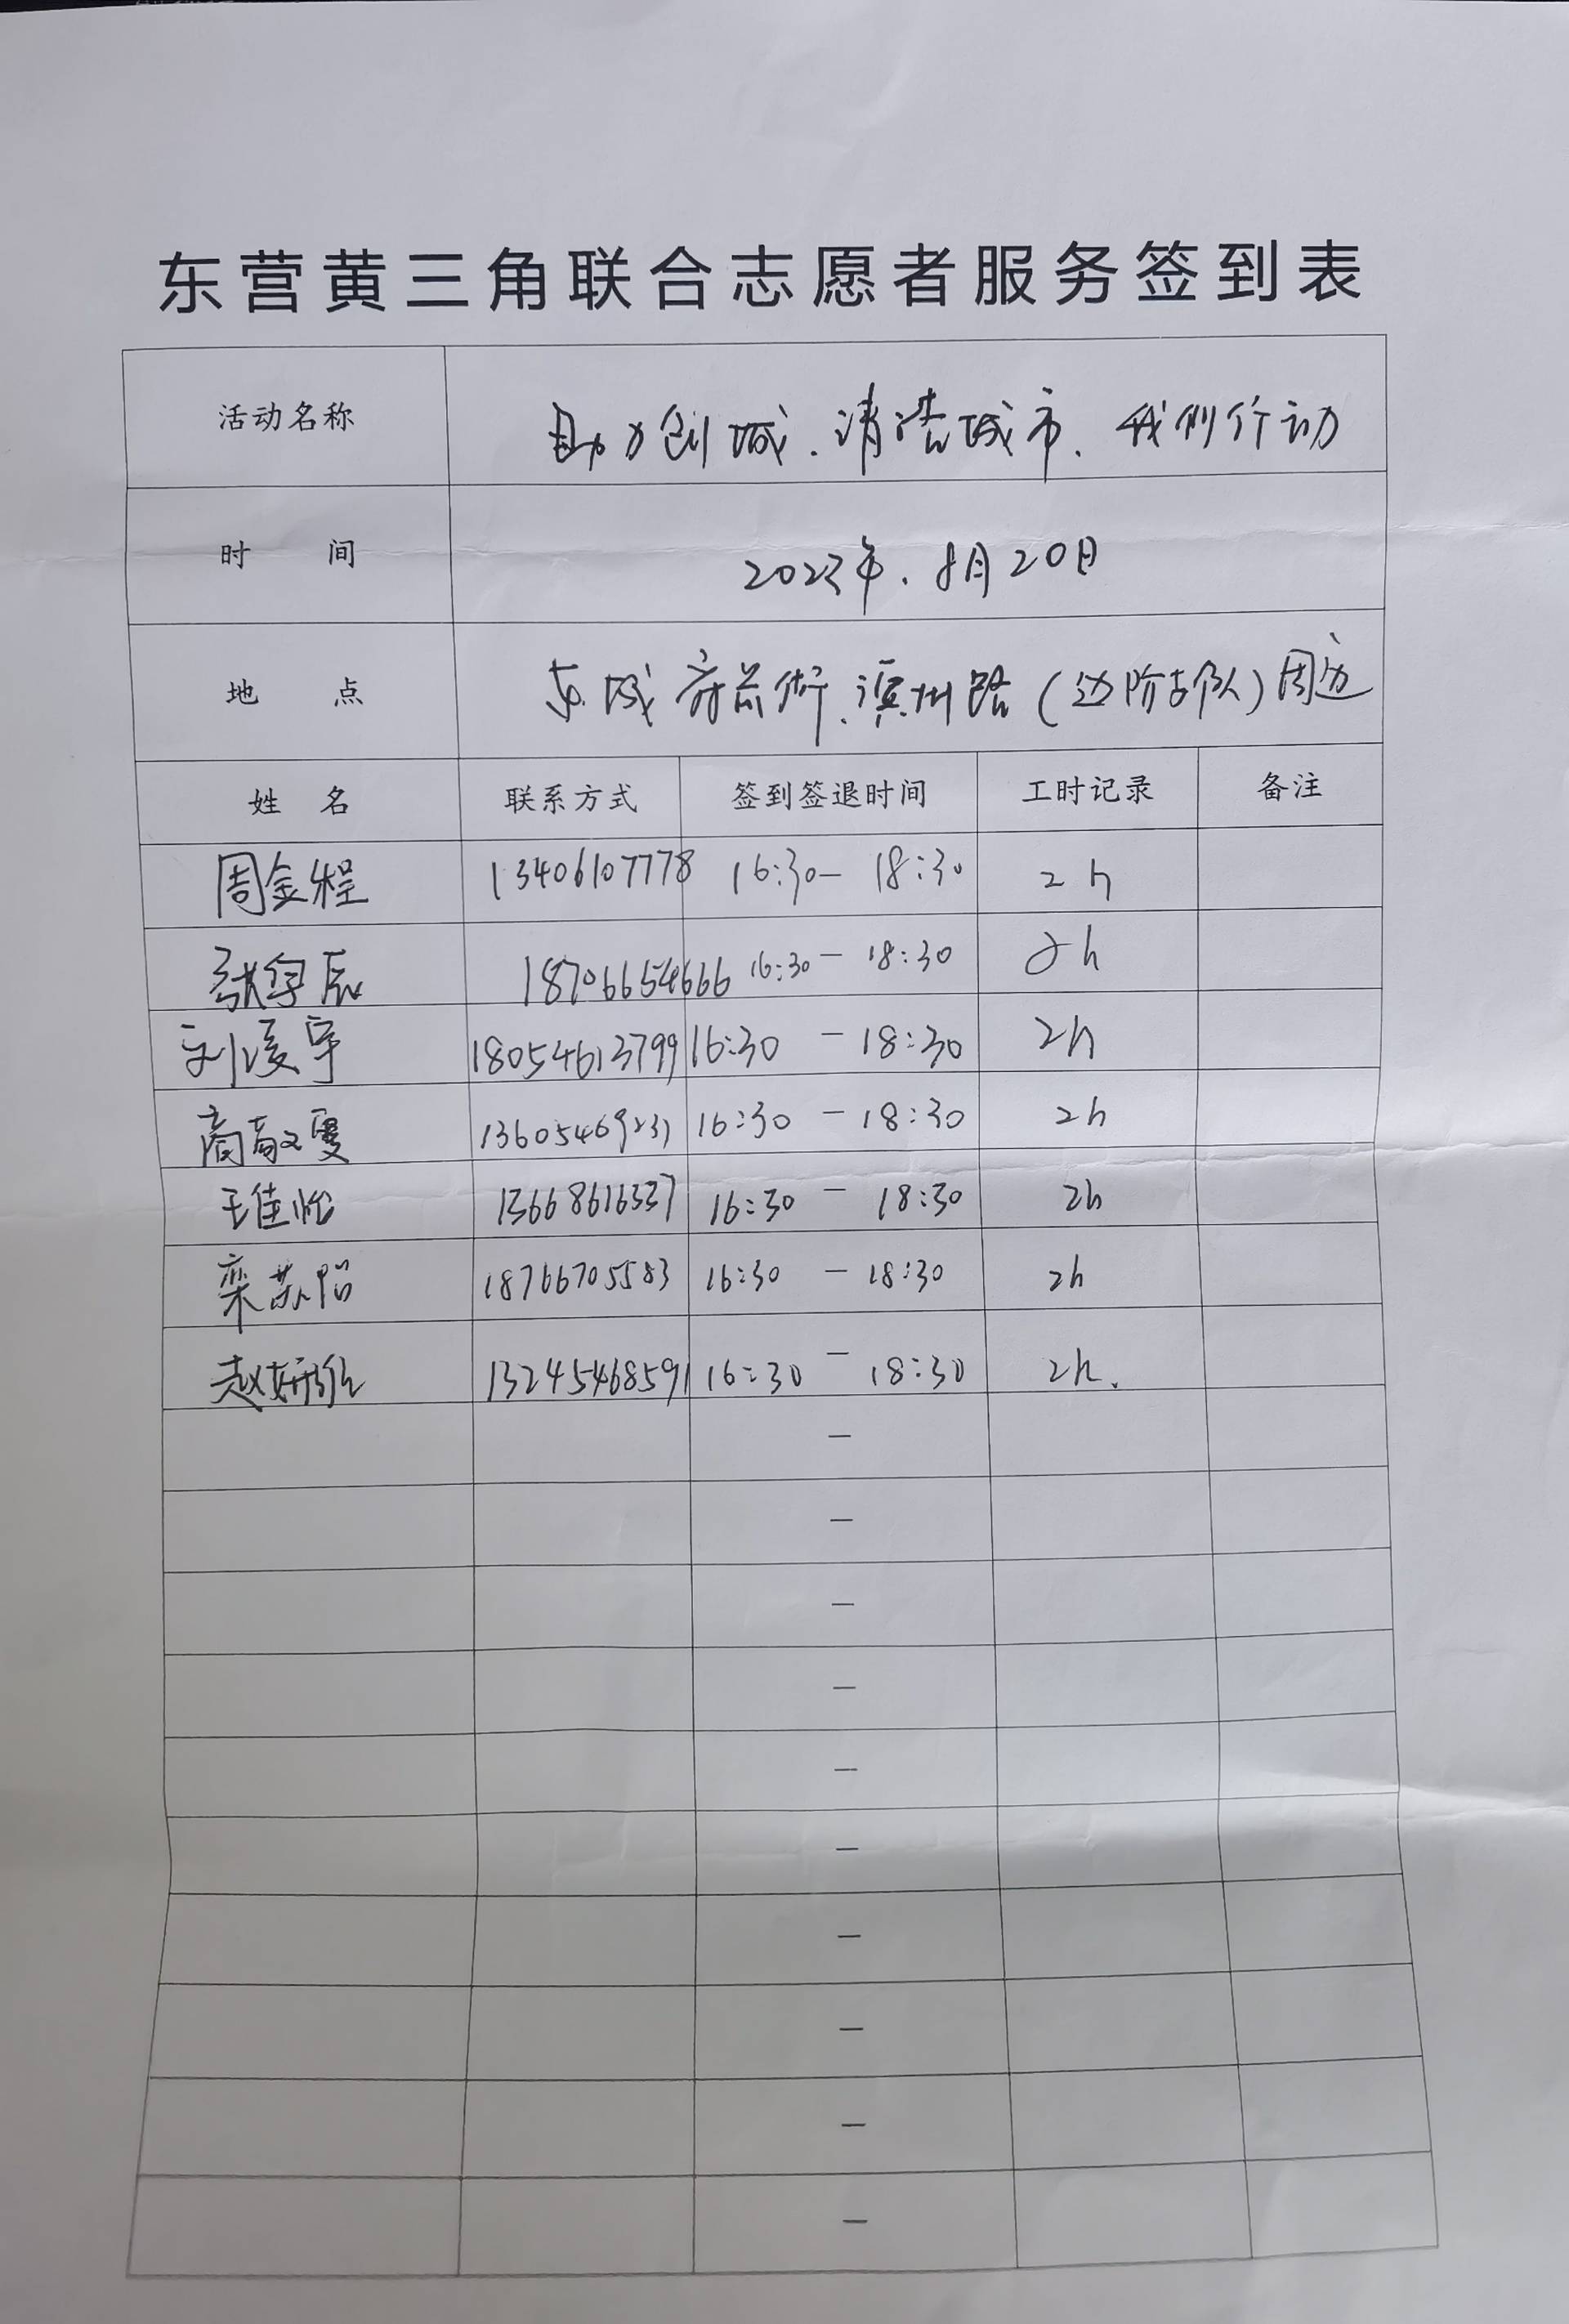 东营黄三角联合志愿者服务签到表
活动名称 助力创城.清洁城市.我们行动
时 间 2023年.8月20日
地 点 东城府前街.滨州路(边防支队)周边
姓 名 联系方式 签到签退时间 工时记录 备注
周金程 13406107778 16:30- 18:30 2h
张宇辰 18706654666 16:30 - 18:30 2h
刘凌宇 18054613799 16:30 - 18:30 2h
商敬雯 13605469231 16:30 - 18:30 2h
王佳怡 13668616337 16:30 - 18:30 2h
栾苏 18766705583 16:30 - 18:30 2h
赵妍 13245468591 16:30 - 18:30 2h.
-
-
-
-
-
-
-
-
-
-